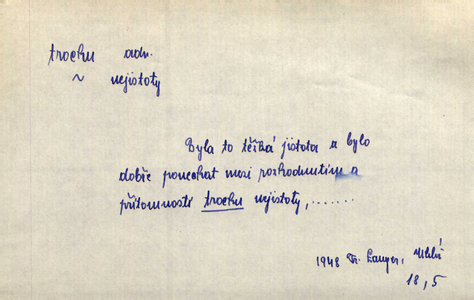 trochu adv.
~ nejistoty
Byla to těžká jistota a bylo
dobře ponechat mezi rozhodnutím a
přítomností trochu nejistoty,.......
1948 Fr. Langer,
18, 5